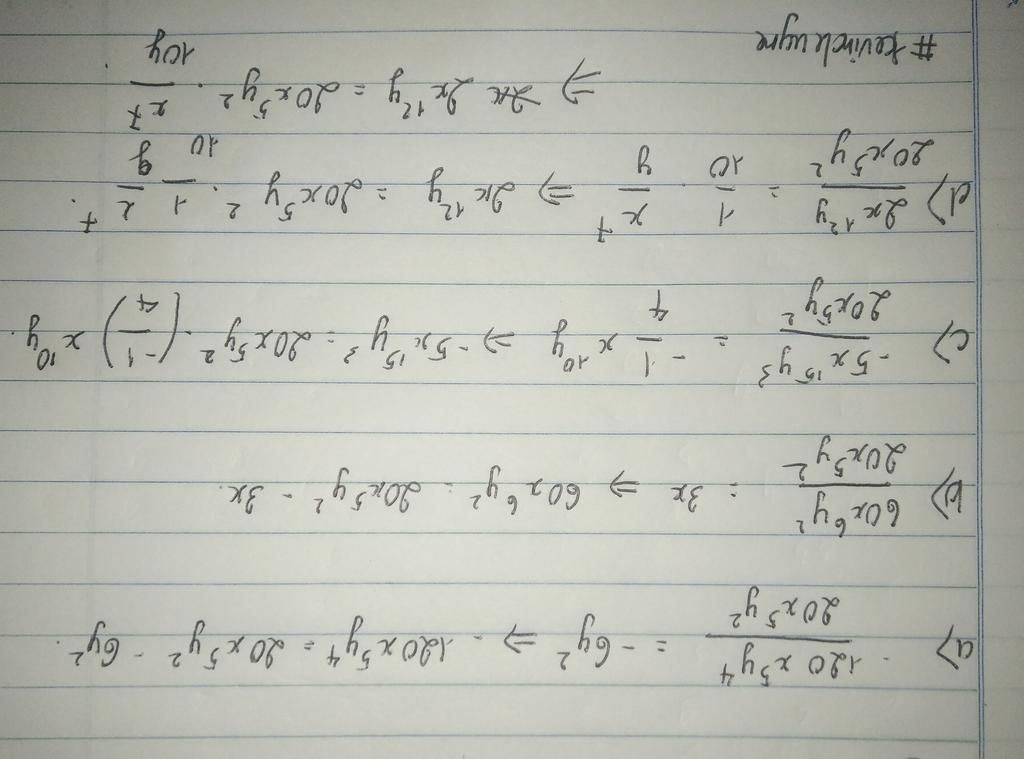 a) -120x⁵y⁴ / 20x⁵y² = -6y² ⇒ -120x⁵y⁴ = 20x⁵y² - 6y².
b) 60x⁶y² / 20x⁵y² = 3x ⇒ 60x⁶y² = 20x⁵y² - 3x.
c) -5x¹⁵y³ / 20x⁵y² = -1/4 x¹⁰y ⇒ -5x¹⁵y³ = 20x⁵y² · (-1/4) x¹⁰y.
d) 2x¹²y / 20x⁵y² = 1/10 · x⁷/y ⇒ 2x¹²y = 20x⁵y² · 1/10 x⁷/y.
⇒ 2x¹²y = 20x⁵y² · x⁷/10y.